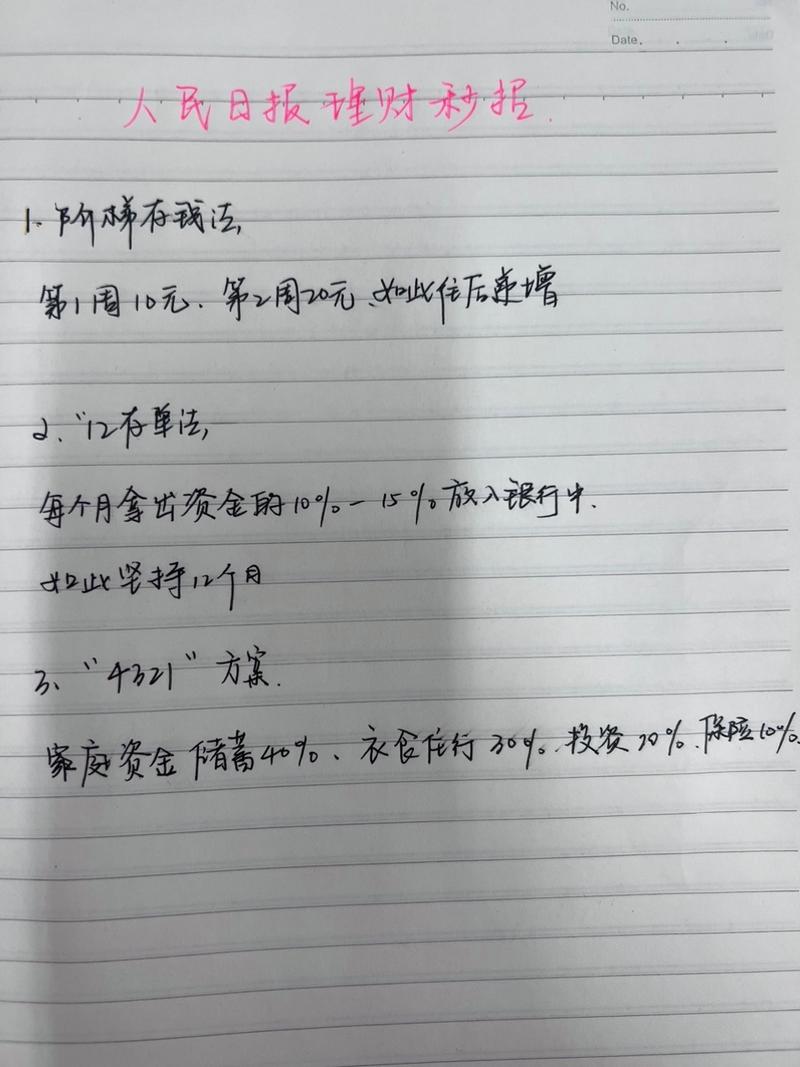 No.
Date.
人民日报理财秒招.
1. 阶梯存钱法,
第1周10元、第2周20元、如此往后递增
2、“12存单法,
每个月拿出资金的10%-15%放入银行中.
如此坚持12个月
3、“4321”方案.
家庭资金储蓄40%、衣食住行30%、投资20%、保险10%.